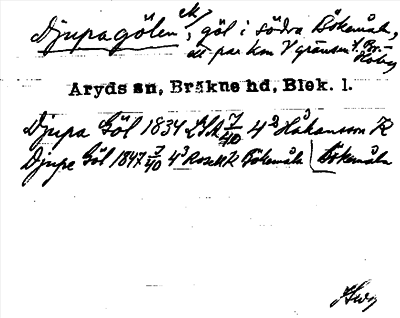 Djupagölen, göl i södra Bökemåla,
ett par km V gränsen t.
Aryds sn, Bräkne hd, Blek. l.
Djupa Göl 1834 LSA 7/40 4 Håkansson K
Djupe Göl 1847 7/40 4 Rosell K Bökemåla Bökemåla